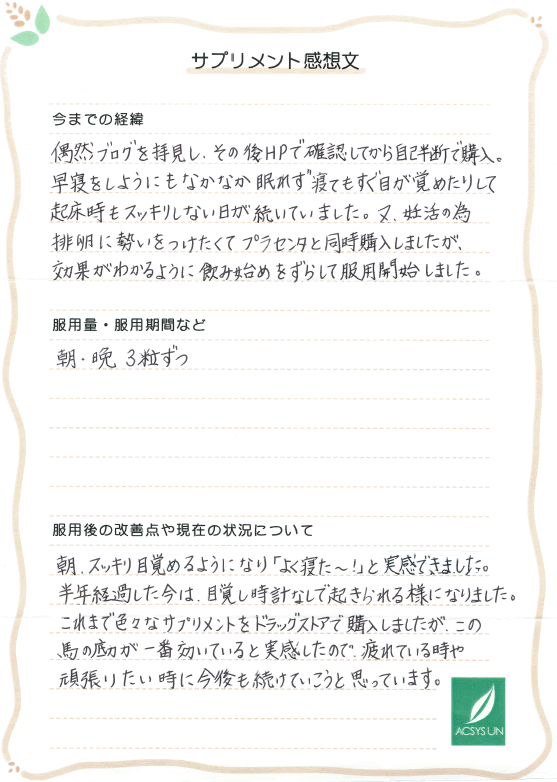 サプリメント感想文
今までの経緯
偶然ブログを拝見し、その後HPで確認してから自己判断で購入。
早寝をしようにもなかなか眠れず寝てもすぐ目が覚めたりして
起床時もスッキリしない日が続いていました。又、妊活の為
排卵に勢いをつけたくてプラセンタと同時購入しましたが、
効果がわかるように飲み始めをずらして服用開始しました。
服用量・服用期間など
朝・晩 3粒ずつ
服用後の改善点や現在の状況について
朝、スッキリ目覚めるようになり「よく寝た〜!」と実感できました。
半年経過した今は、目覚し時計なしで起きられる様になりました。
これまで色々なサプリメントをドラッグストアで購入しましたが、この
馬の国力が一番効いていると実感したので、疲れている時や
頑張りたい時に今後も続けていこうと思っています。
ACSYS UN